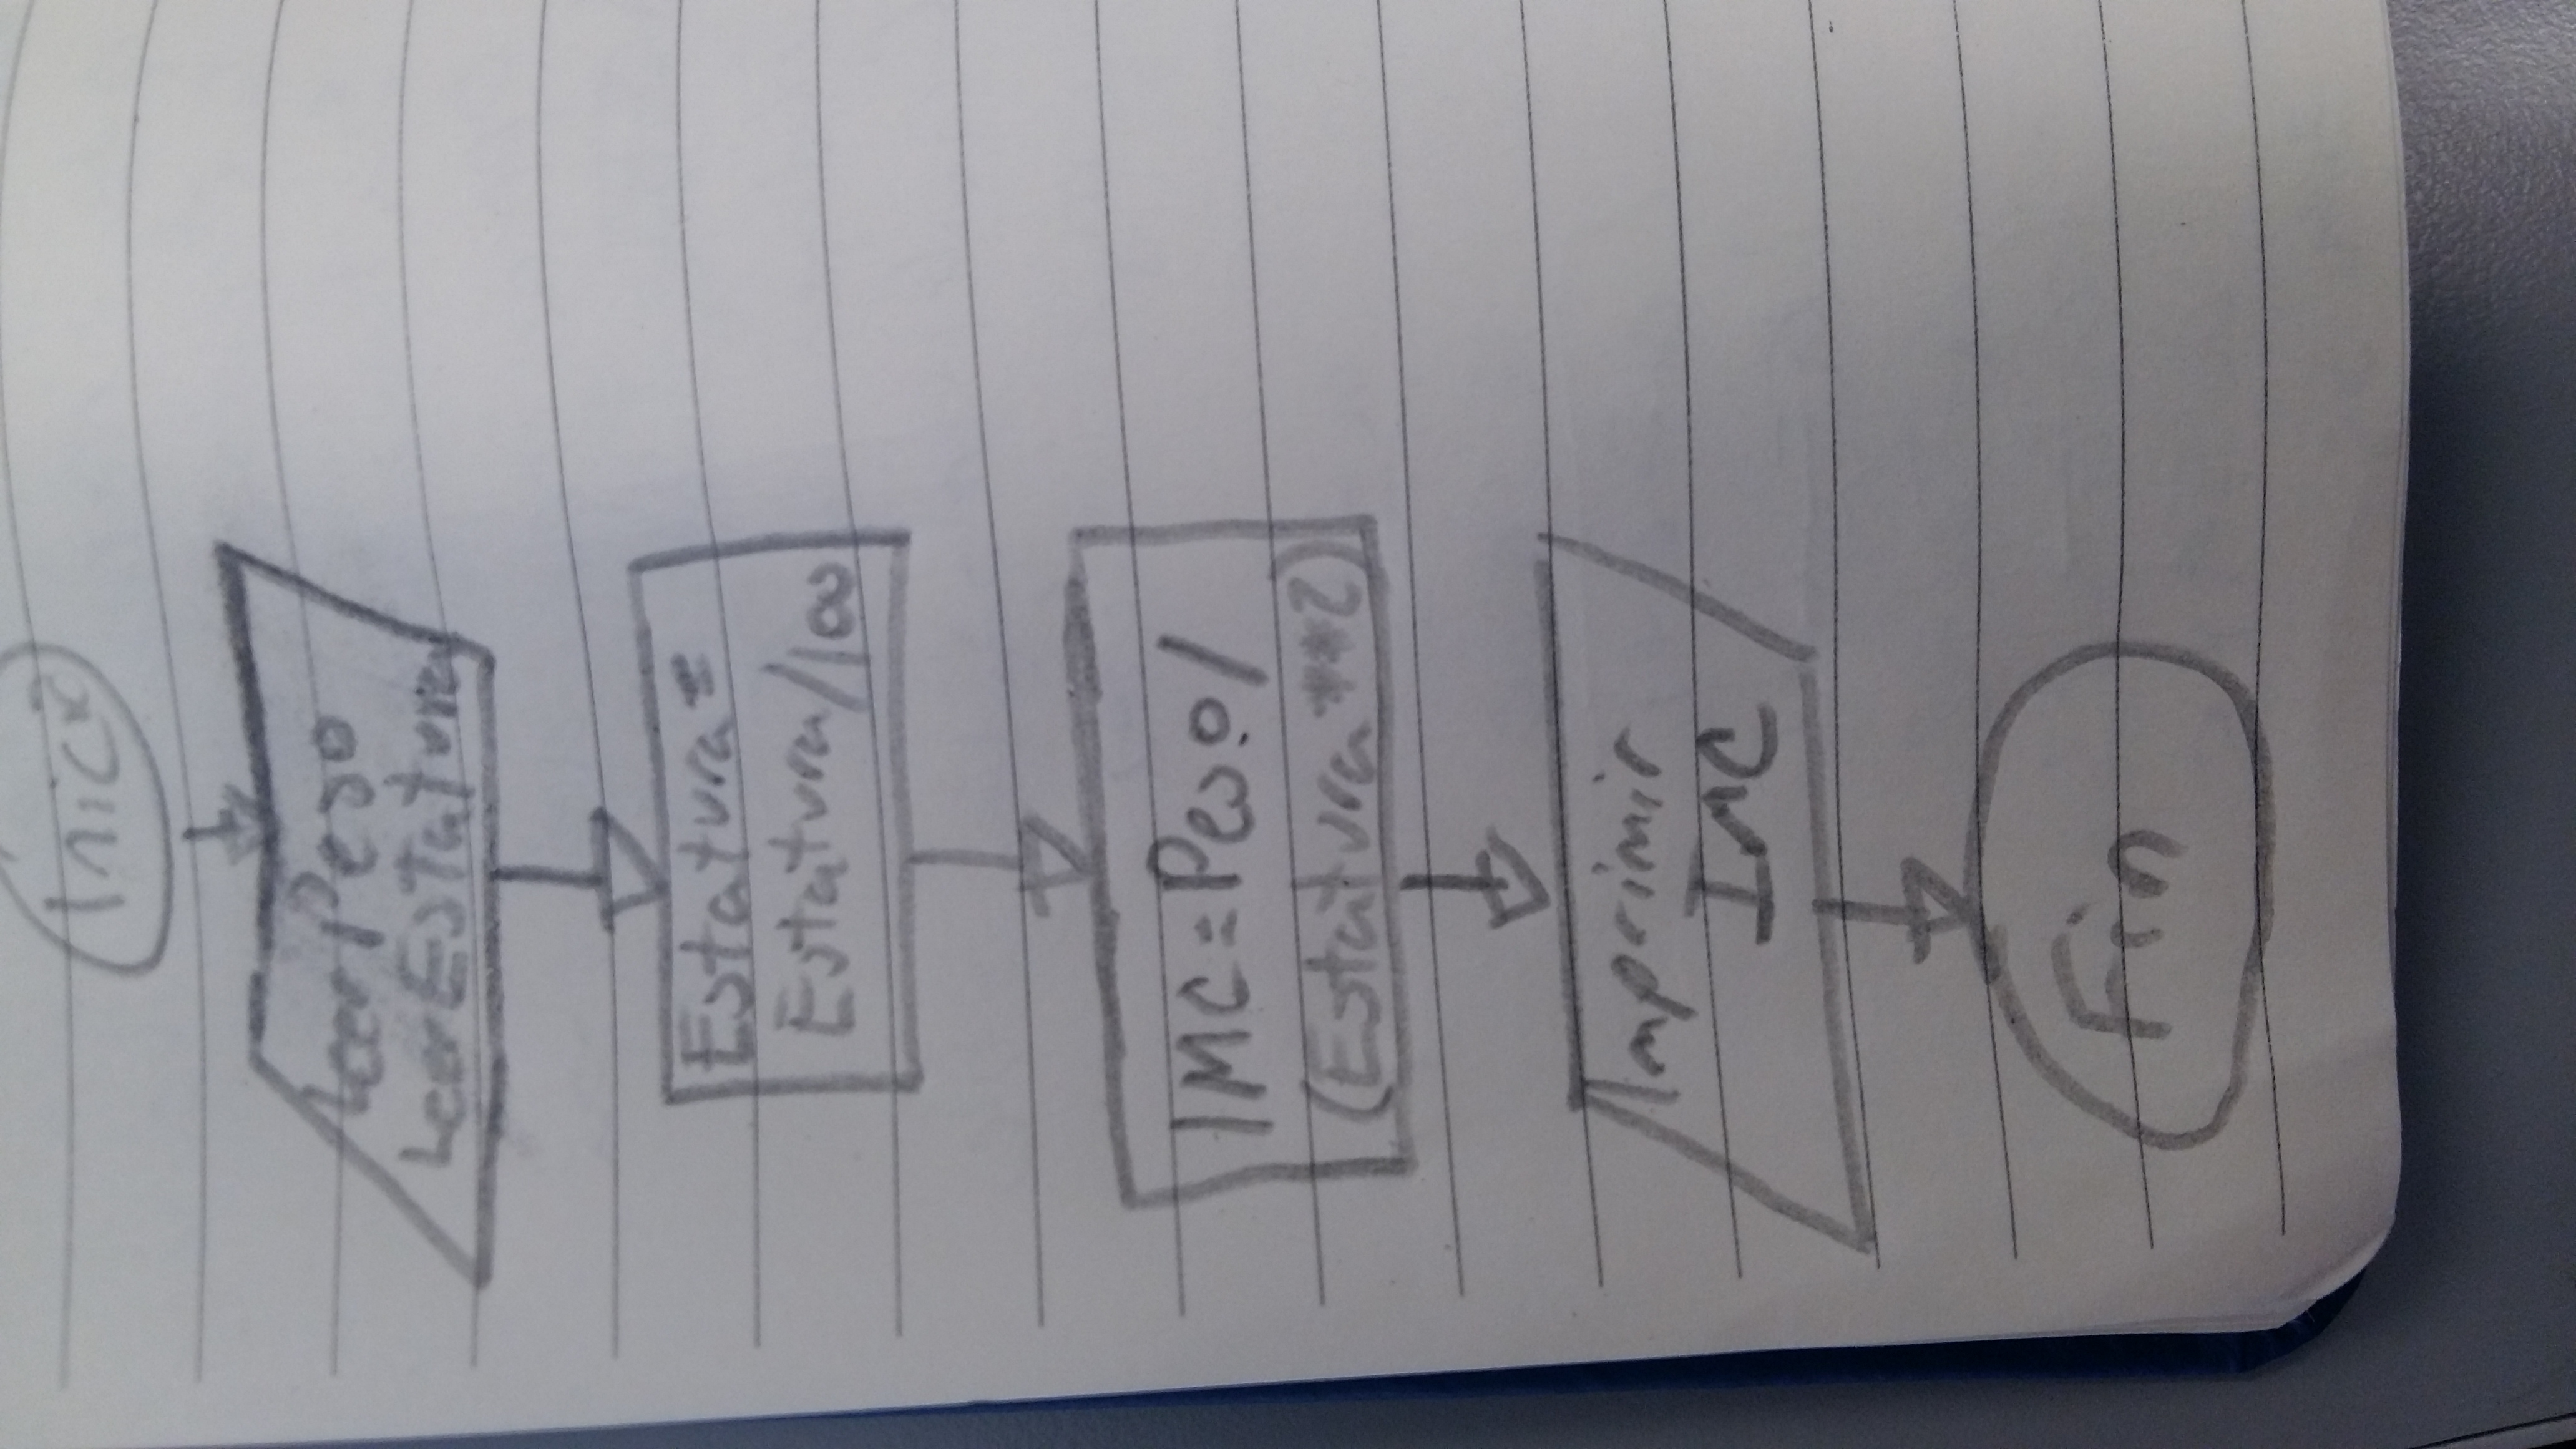 Inicio
Leer Peso
Leer Estatura
Estatura =
Estatura/100
IMC = Peso/
(Estatura**2)
Imprimir
IMC
Fin